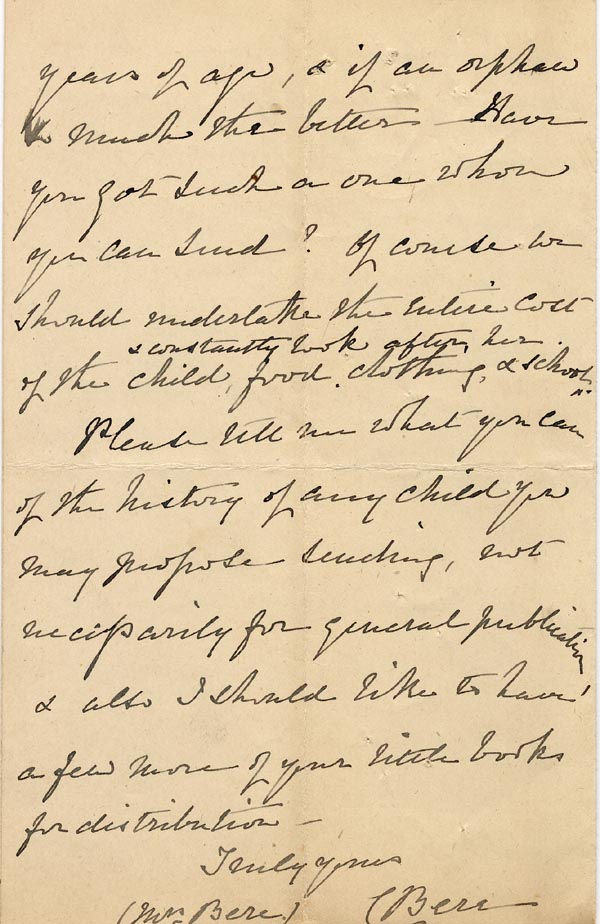 years of age, & if an orphan
so much the better – Have
you got such a one whom
you can send? Of course we
should undertake the entire cost
& constantly look after her.
of the child, food, clothing, & school
Please tell me what you can
of the history of any child you
may propose sending, not
necessarily for general publication
& also I should like to have
a few more of your little books
for distribution –
Truly yours
(Mrs Bere.) C Bere